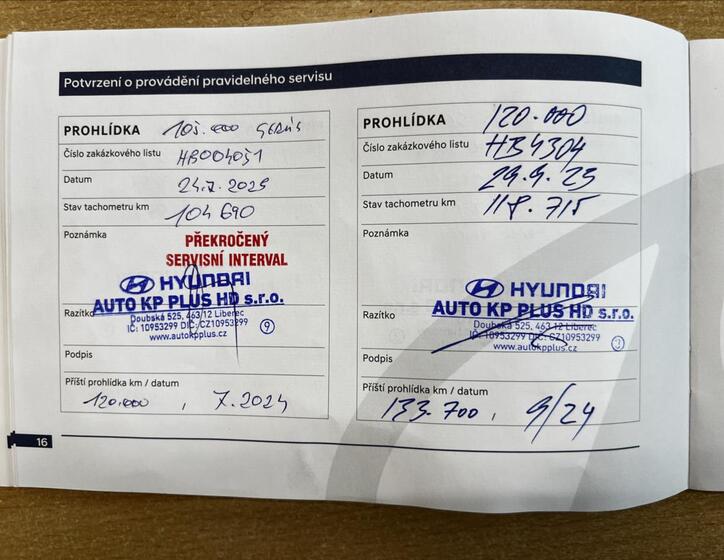 Potvrzení o provádění pravidelného servisu
PROHLÍDKA 105.000 SERVIS
Číslo zakázkového listu HB004051
Datum 24.7.2023
Stav tachometru km 104 690
Poznámka
PŘEKROČENÝ
SERVISNÍ INTERVAL
HYUNDAI
AUTO KP PLUS HD s.r.o.
Razítko
Doubská 525, 463/12 Liberec
IČ: 10953299 DIČ: CZ10953299
www.autokpplus.cz
9
Podpis
Příští prohlídka km / datum
120.000, 7.2024
PROHLÍDKA 120.000
Číslo zakázkového listu HB4304
Datum 29.9.23
Stav tachometru km 118.715
Poznámka
HYUNDAI
AUTO KP PLUS HD s.r.o.
Razítko
Doubská 525, 463 12 Liberec
IČ: 10953299 DIČ: CZ10953299
www.autokpplus.cz
Podpis
Příští prohlídka km / datum
133.700, 9/24
16